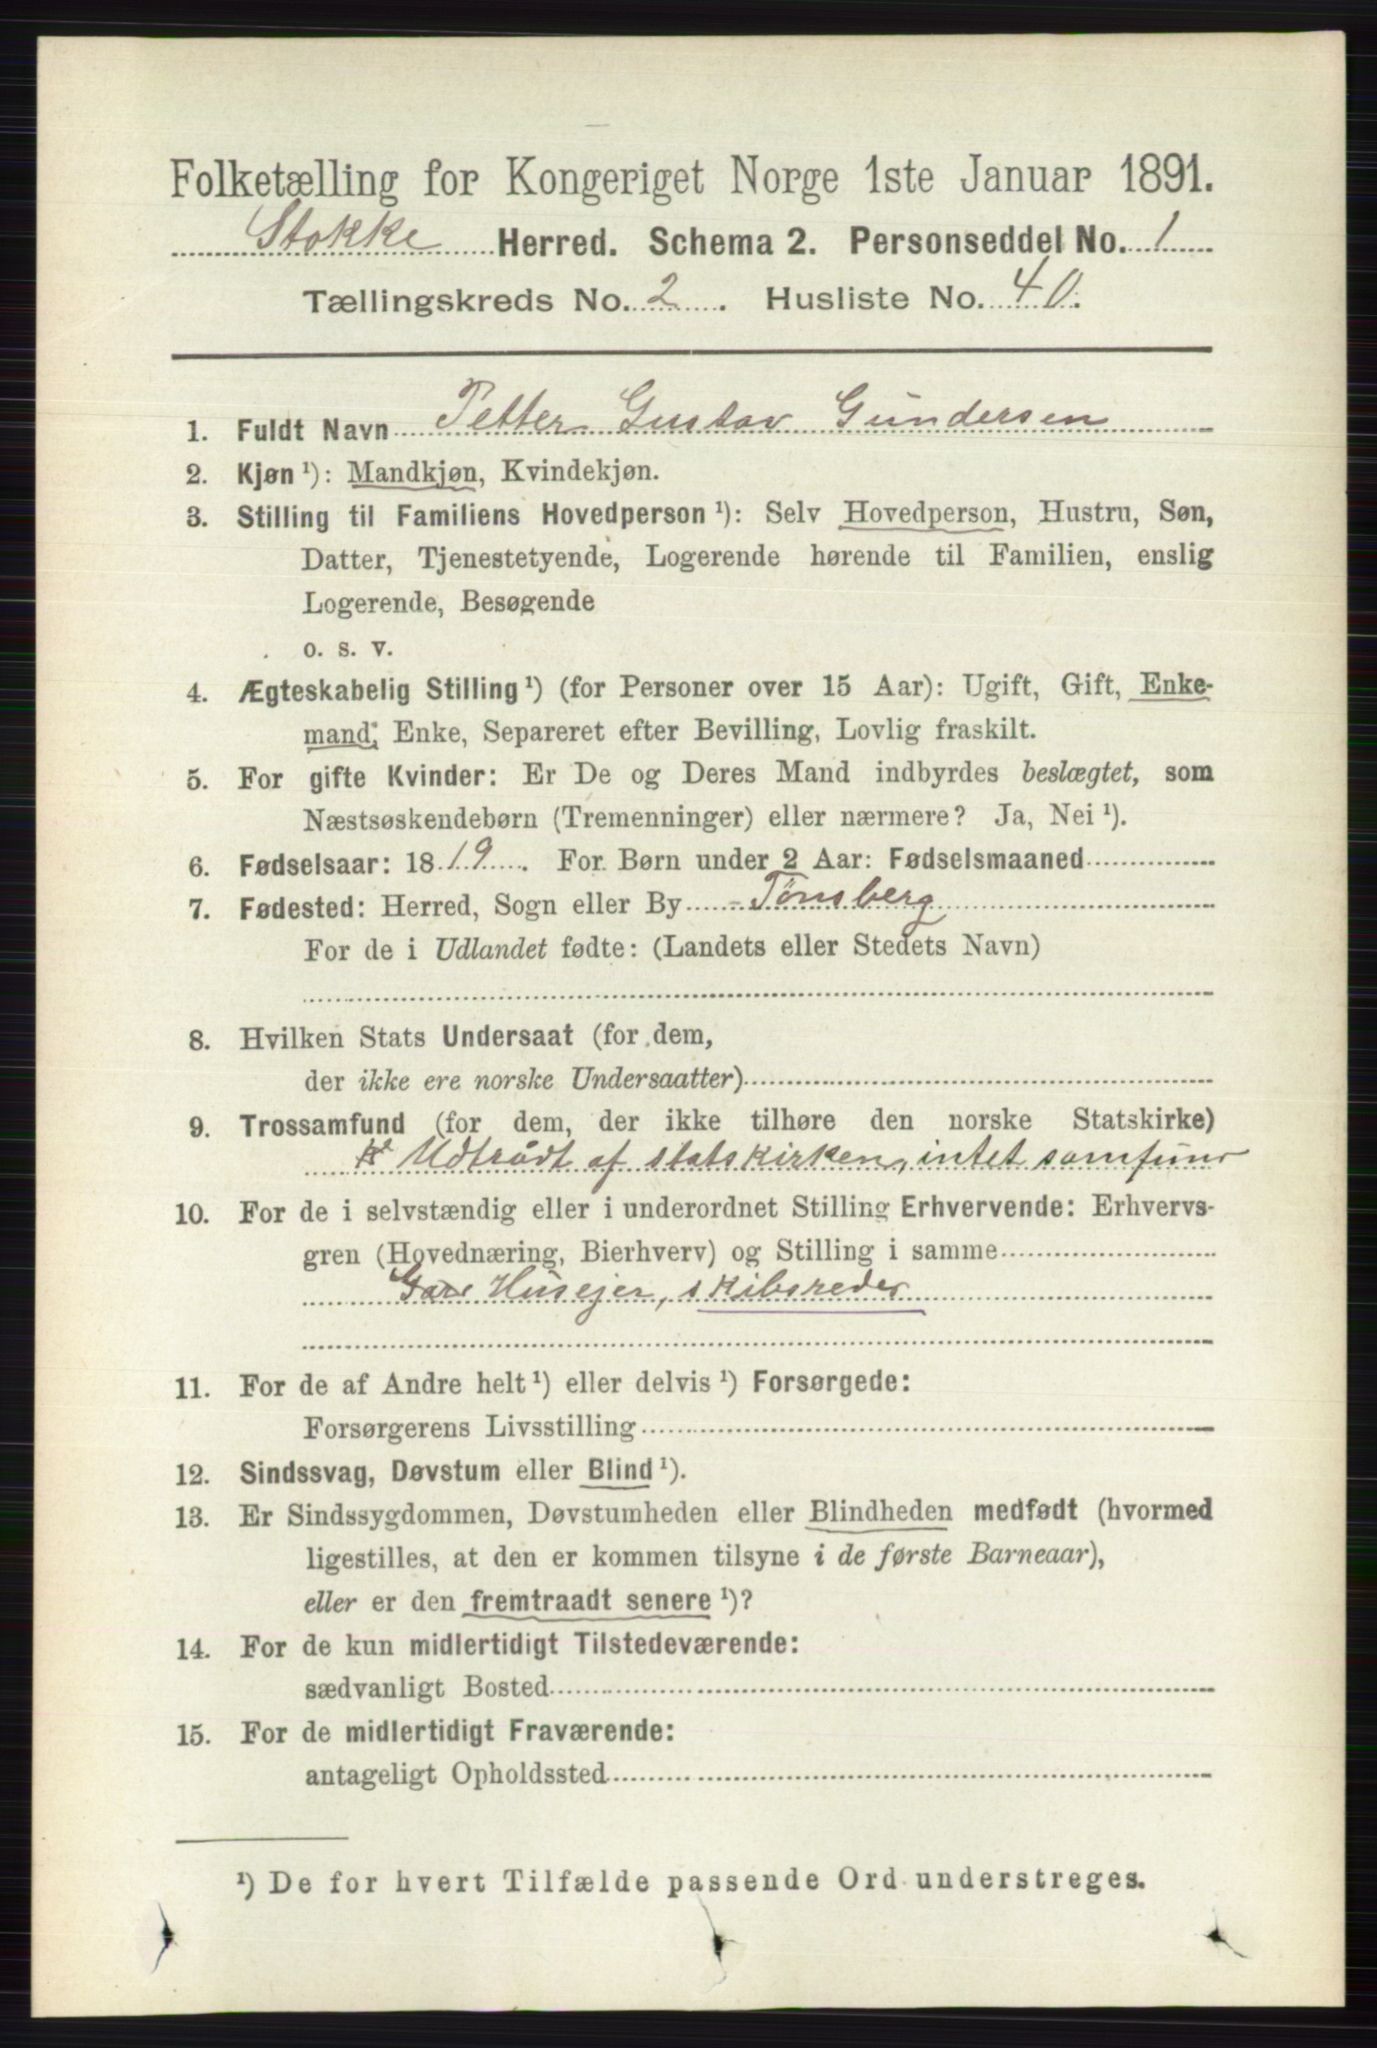 Folketælling for Kongeriget Norge 1ste Januar 1891.
Stokke Herred. Schema 2. Personseddel No. 1
Tællingskreds No. 2. Husliste No. 40.
1. Fuldt Navn Petter Gustav Gundersen
2. Kjøn ¹): Mandkjøn, Kvindekjøn.
3. Stilling til Familiens Hovedperson ¹): Selv Hovedperson, Hustru, Søn,
Datter, Tjenestetyende, Logerende hørende til Familien, enslig
Logerende, Besøgende
o. s. v.
4. Ægteskabelig Stilling ¹) (for Personer over 15 Aar): Ugift, Gift, Enke-
mand, Enke, Separeret efter Bevilling, Lovlig fraskilt.
5. For gifte Kvinder: Er De og Deres Mand indbyrdes beslægtet, som
Næstsøskendebørn (Tremenninger) eller nærmere? Ja, Nei ¹).
6. Fødselsaar: 1819. For Børn under 2 Aar: Fødselsmaaned
7. Fødested: Herred, Sogn eller By Tønsberg
For de i Udlandet fødte: (Landets eller Stedets Navn)
8. Hvilken Stats Undersaat (for dem,
der ikke ere norske Undersaatter)
9. Trossamfund (for dem, der ikke tilhøre den norske Statskirke)
Udtrådt af statskirken, intet samfund
10. For de i selvstændig eller i underordnet Stilling Erhvervende: Erhvervs-
gren (Hovednæring, Bierhverv) og Stilling i samme
Husejer, skibsreder
11. For de af Andre helt ¹) eller delvis ¹) Forsørgede:
Forsørgerens Livsstilling
12. Sindssvag, Døvstum eller Blind ¹).
13. Er Sindssygdommen, Døvstumheden eller Blindheden medfødt (hvormed
ligestilles, at den er kommen tilsyne i de første Barneaar),
eller er den fremtraadt senere ¹)?
14. For de kun midlertidigt Tilstedeværende:
sædvanligt Bosted
15. For de midlertidigt Fraværende:
antageligt Opholdssted
¹) De for hvert Tilfælde passende Ord understreges.